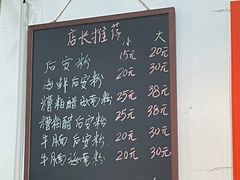 店长推荐
小 大
后安粉 15元 20元
海鲜后安粉 20元 30元
糟粕醋海南粉 25元 38元
糟粕醋后安粉 25元 38元
牛腩后安粉 20元 30元
牛腩海南粉 20元 30元